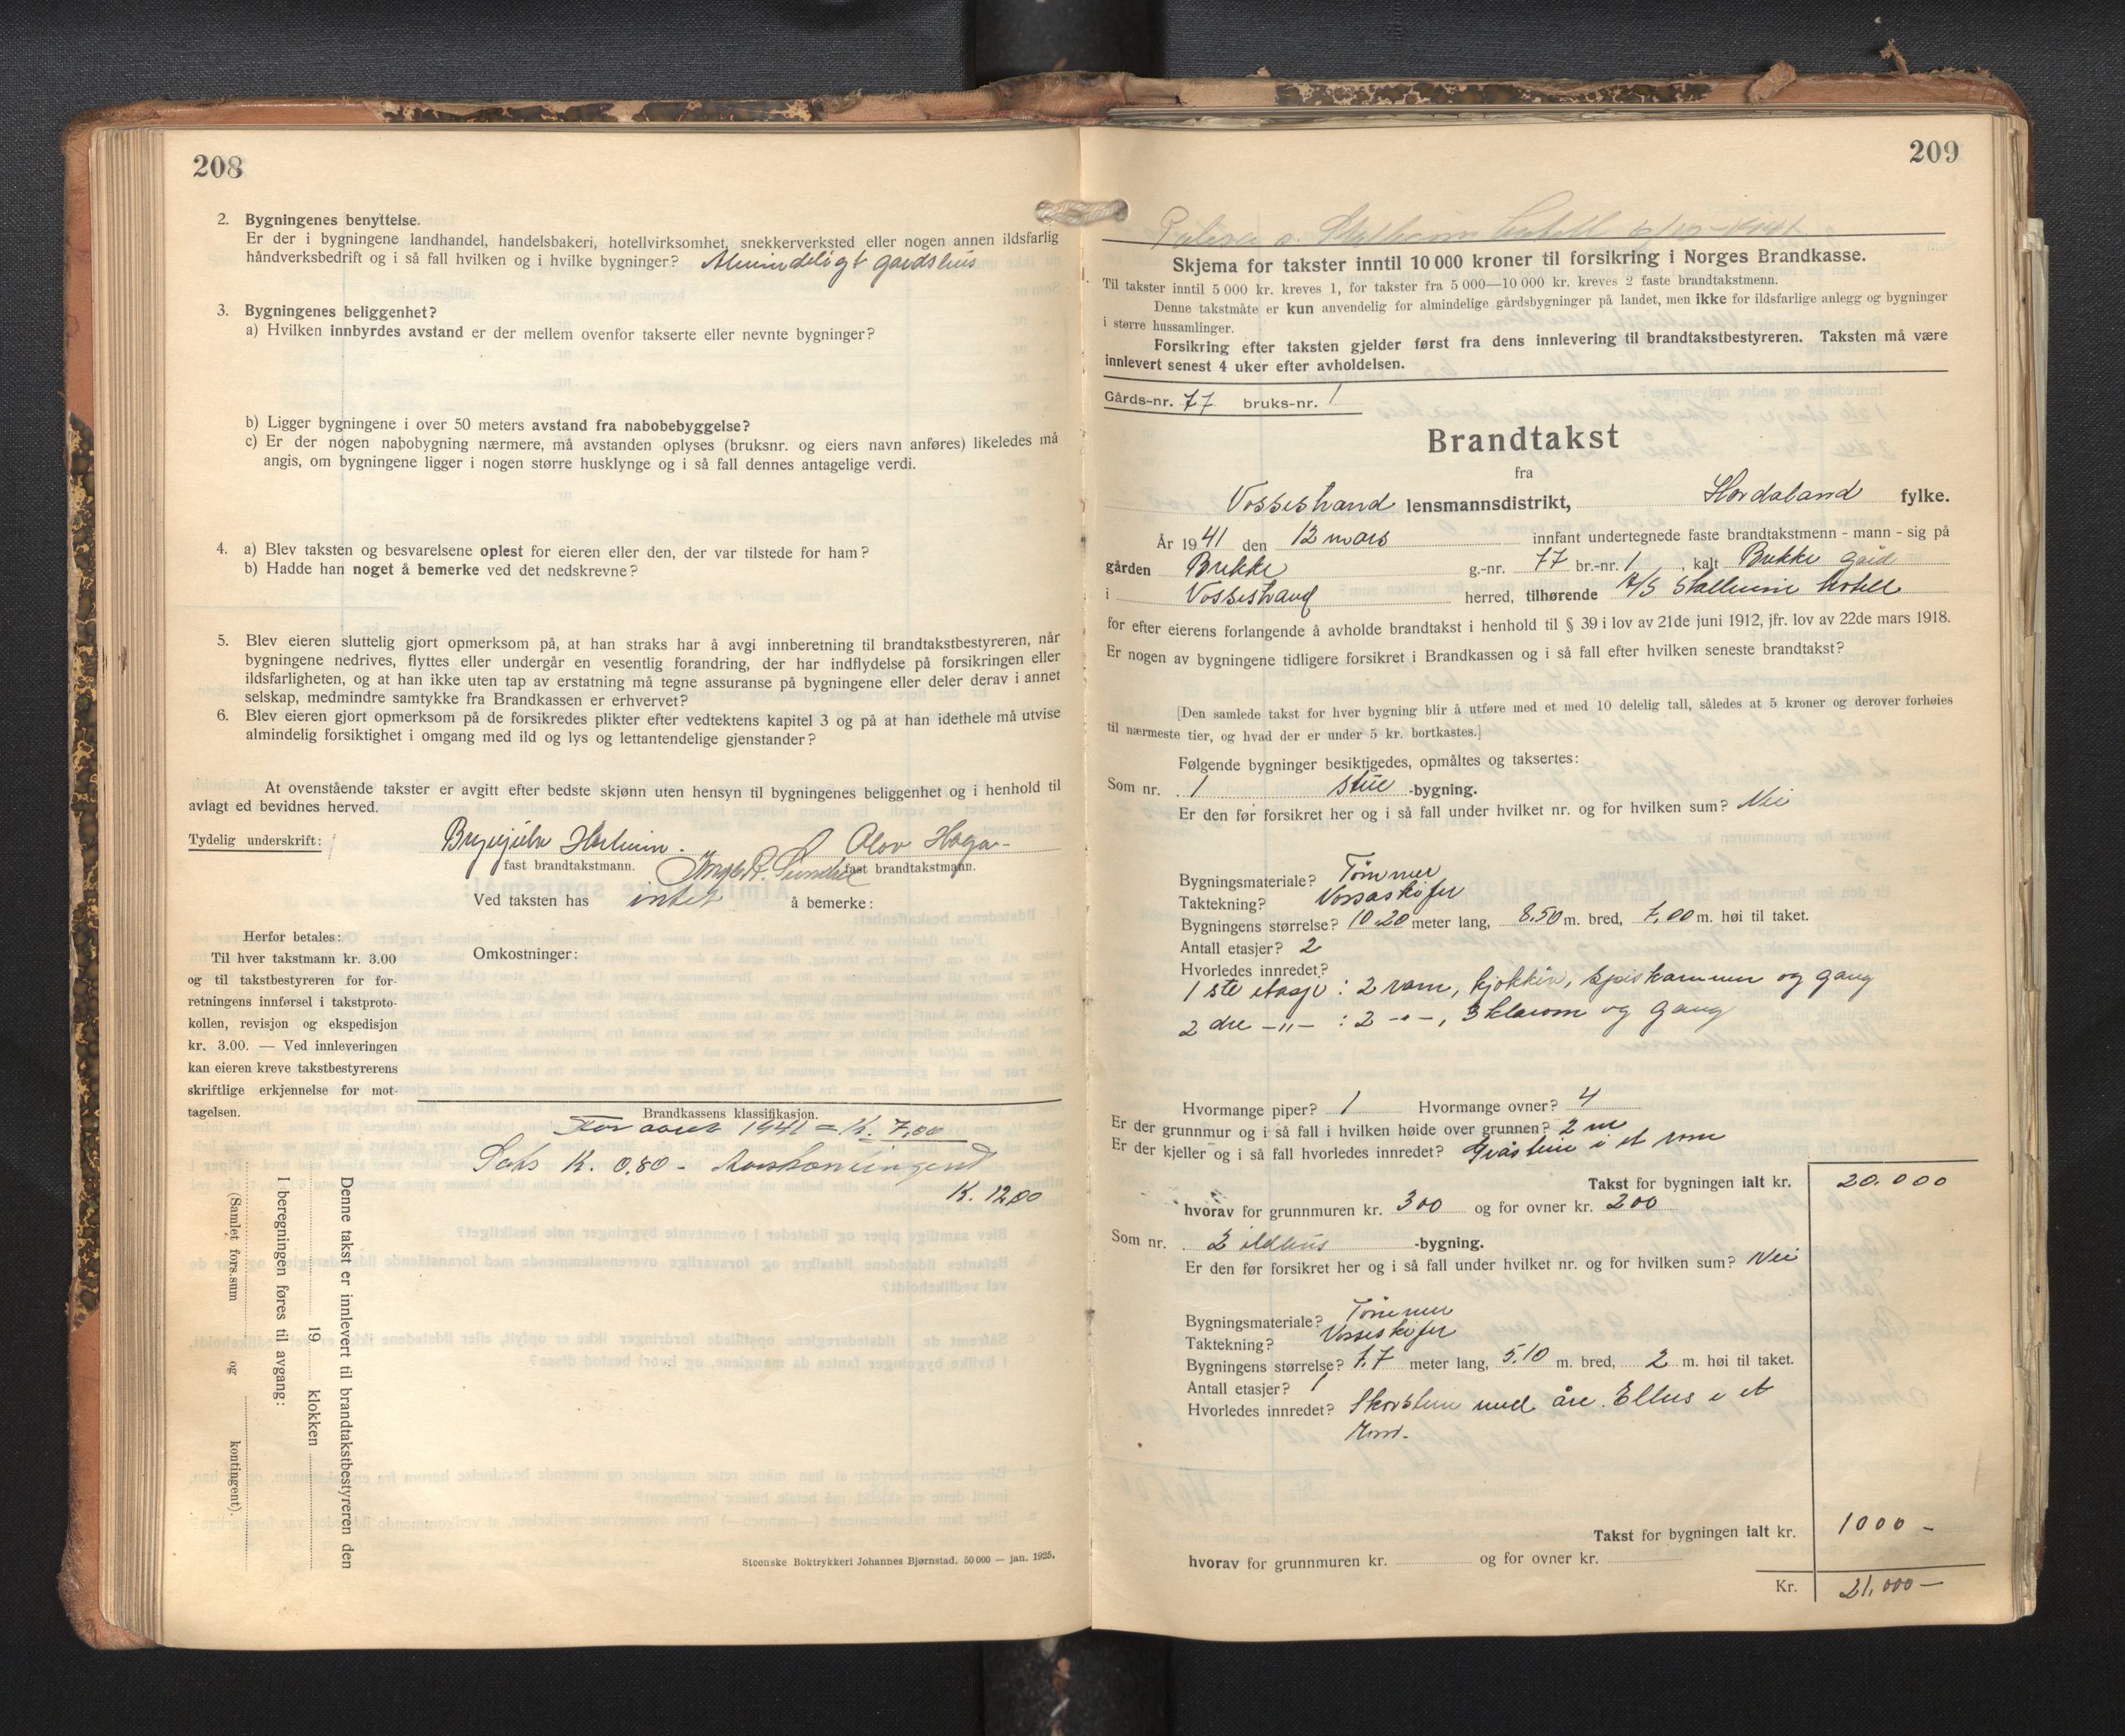 208
2. Bygningenes benyttelse.
Er der i bygningene landhandel, handelsbakeri, hotellvirksomhet, snekkerverksted eller nogen annen ildsfarlig
håndverksbedrift og i så fall hvilken og i hvilke bygninger? Almindeligt gårdshus
3. Bygningenes beliggenhet?
a) Hvilken innbyrdes avstand er der mellem ovenfor takserte eller nevnte bygninger?
b) Ligger bygningene i over 50 meters avstand fra nabobebyggelse?
c) Er der nogen nabobygning nærmere, må avstanden oplyses (bruksnr. og eiers navn anføres) likeledes må
angis, om bygningene ligger i nogen større husklynge og i så fall dennes antagelige verdi.
4. a) Blev taksten og besvarelsene oplest for eieren eller den, der var tilstede for ham?
b) Hadde han noget å bemerke ved det nedskrevne?
5. Blev eieren sluttelig gjort opmerksom på, at han straks har å avgi innberetning til brandtakstbestyreren, når
bygningene nedrives, flyttes eller undergår en vesentlig forandring, der har indflydelse på forsikringen eller
ildsfarligheten, og at han ikke uten tap av erstatning må tegne assuranse på bygningene eller deler derav i annet
selskap, medmindre samtykke fra Brandkassen er erhvervet?
6. Blev eieren gjort opmerksom på de forsikredes plikter efter vedtektens kapitel 3 og på at han idethele må utvise
almindelig forsiktighet i omgang med ild og lys og lettantendelige gjenstander?
At ovenstående takster er avgitt efter bedste skjønn uten hensyn til bygningenes beliggenhet og i henhold til
avlagt ed bevidnes herved.
Tydelig underskrift: Olav Haga
fast brandtakstmann. fast brandtakstmann.
Ved taksten has intet å bemerke:
Herfor betales:
Til hver takstmann kr. 3.00
og til takstbestyreren for for-
retningens innførsel i takstproto-
kollen, revisjon og ekspedisjon
kr. 3.00. — Ved innleveringen
kan eieren kreve takstbestyrerens
skriftlige erkjennelse for mot-
tagelsen.
Omkostninger:
Brandkassens klassifikasjon.
For aaret 1941 = K. 7,00
Sats K. 0,80 - Aarskontingent
K. 12,00
Denne takst er innlevert til brandtakstbestyreren den
19 klokken
I beregningen føres til avgang:
(Samlet fors.sum og kontingent).
Steenske Boktrykkeri Johannes Bjørnstad. 50 000 — jan. 1925.
209
Stalheim hotell
Skjema for takster inntil 10 000 kroner til forsikring i Norges Brandkasse.
Til takster inntil 5 000 kr. kreves 1, for takster fra 5 000—10 000 kr. kreves 2 faste brandtakstmenn.
Denne takstmåte er kun anvendelig for almindelige gårdsbygninger på landet, men ikke for ildsfarlige anlegg og bygninger
i større hussamlinger.
Forsikring efter taksten gjelder først fra dens innlevering til brandtakstbestyreren. Taksten må være
innlevert senest 4 uker efter avholdelsen.
Gårds-nr. 77 bruks-nr. 1
Brandtakst
fra
Vossestrand lensmannsdistrikt, Hordaland fylke.
År 1941 den 12 mars innfant undertegnede faste brandtakstmenn - mann - sig på
gården Brekke g.-nr. 77 br.-nr. 1, kalt Brekke gård
i Vossestrand herred, tilhørende A/S Stalheim hotell
for efter eierens forlangende å avholde brandtakst i henhold til § 39 i lov av 21de juni 1912, jfr. lov av 22de mars 1918.
Er nogen av bygningene tidligere forsikret i Brandkassen og i så fall efter hvilken seneste brandtakst?
[Den samlede takst for hver bygning blir å utføre med et med 10 delelig tall, således at 5 kroner og derover forhøies
til nærmeste tier, og hvad der er under 5 kr. bortkastes.]
Følgende bygninger besiktigedes, opmåltes og taksertes:
Som nr. 1 stue -bygning.
Er den før forsikret her og i så fall under hvilket nr. og for hvilken sum? Nei
Bygningsmateriale? Tømmer
Taktekning? Vossaskifer
Bygningens størrelse? 10.20 meter lang, 8.50 m. bred, 7,00 m. høi til taket.
Antall etasjer? 2
Hvorledes innredet?
1 ste etasje : 2 rom, kjøkken, spiskammer og gang
2 dre -"- : 2 -"-, 3 klærom og gang
Hvormange piper? 1 Hvormange ovner? 4
Er der grunnmur og i så fall i hvilken høide over grunnen? 2 m
Er der kjeller og i så fall hvorledes innredet? Gråstein i et rom
Takst for bygningen ialt kr. 20.000
hvorav for grunnmuren kr. 300 og for ovner kr. 200
Som nr. 2 ildhus -bygning.
Er den før forsikret her og i så fall under hvilket nr. og for hvilken sum? Nei
Bygningsmateriale? Tømmer
Taktekning? Vosseskifer
Bygningens størrelse? 7.7 meter lang, 5.10 m. bred, 2 m. høi til taket.
Antall etasjer? 1
Hvorledes innredet? Skorstein med åre. Ellers i et
rom.
Takst for bygningen ialt kr. 1000 -
hvorav for grunnmuren kr. og for ovner kr.
Kr. 21.000 —